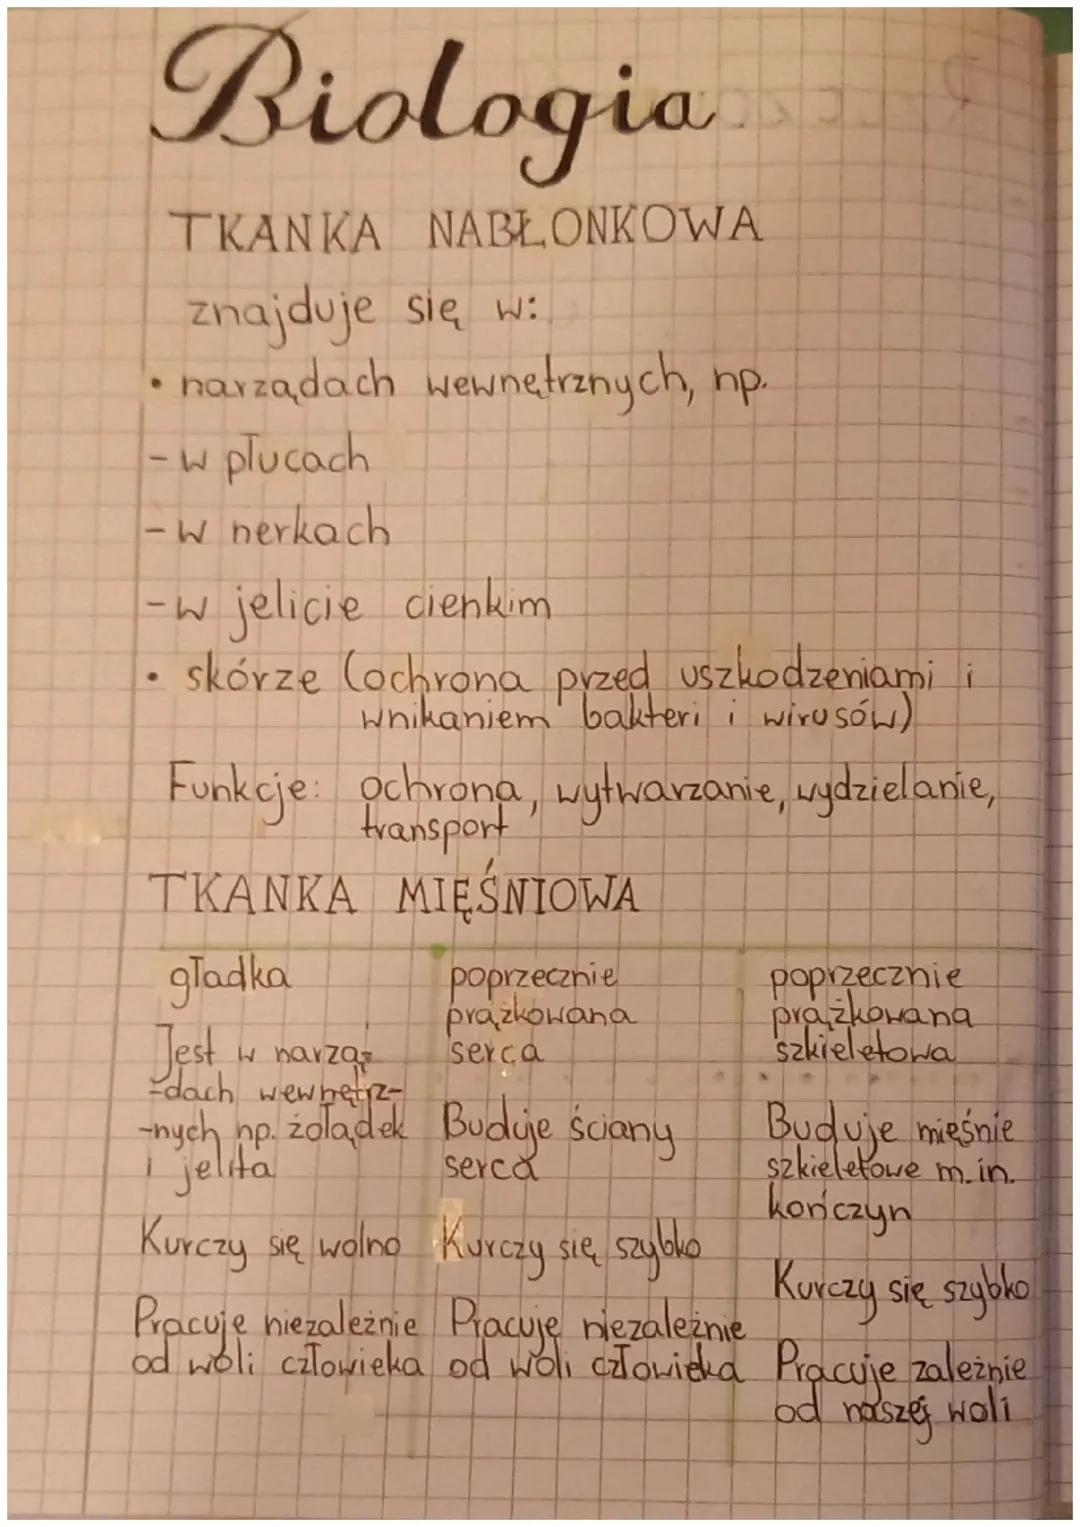 Biologia
TKANKA NABŁONKOWA
znajduje się w:
• narządach wewnętrznych, np.
- w płucach
- w nerkach
- w jelicie cienkim
• skórze (ochrona przed uszkodzeniami i
wnikaniem bakteri i wirusów)
Funkcje: ochrona, wytwarzanie, wydzielanie,
transport
TKANKA MIĘŚNIOWA
gładka
Jest w narzą-
-dach wewnętrz-
-nych np. żołądek
i jelita
Kurczy się wolno
Pracuje niezależnie
od woli człowieka
poprzecznie
prążkowana
serca
Buduje ściany
serca
Kurczy się szybko
Pracuje niezależnie
od woli człowieka
poprzecznie
prążkowana
szkieletowa
Buduje mięśnie
szkieletowe m.in.
kończyn
Kurczy się szybko
Pracuje zależnie
od naszej woli